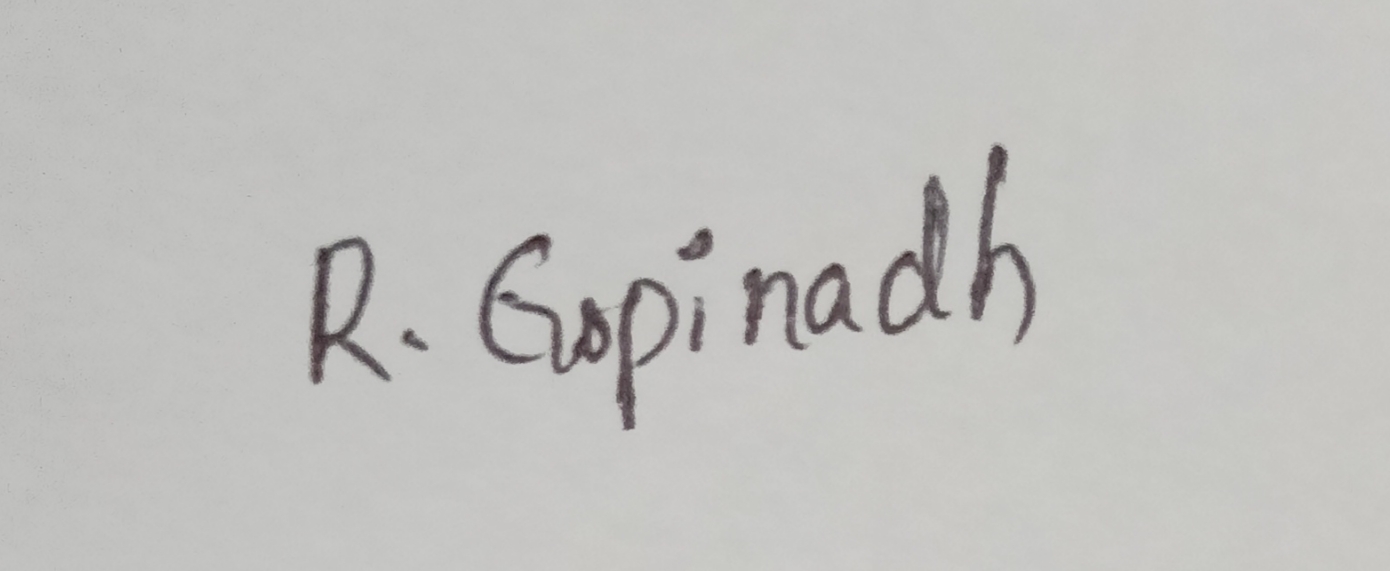 R. Gopinadh